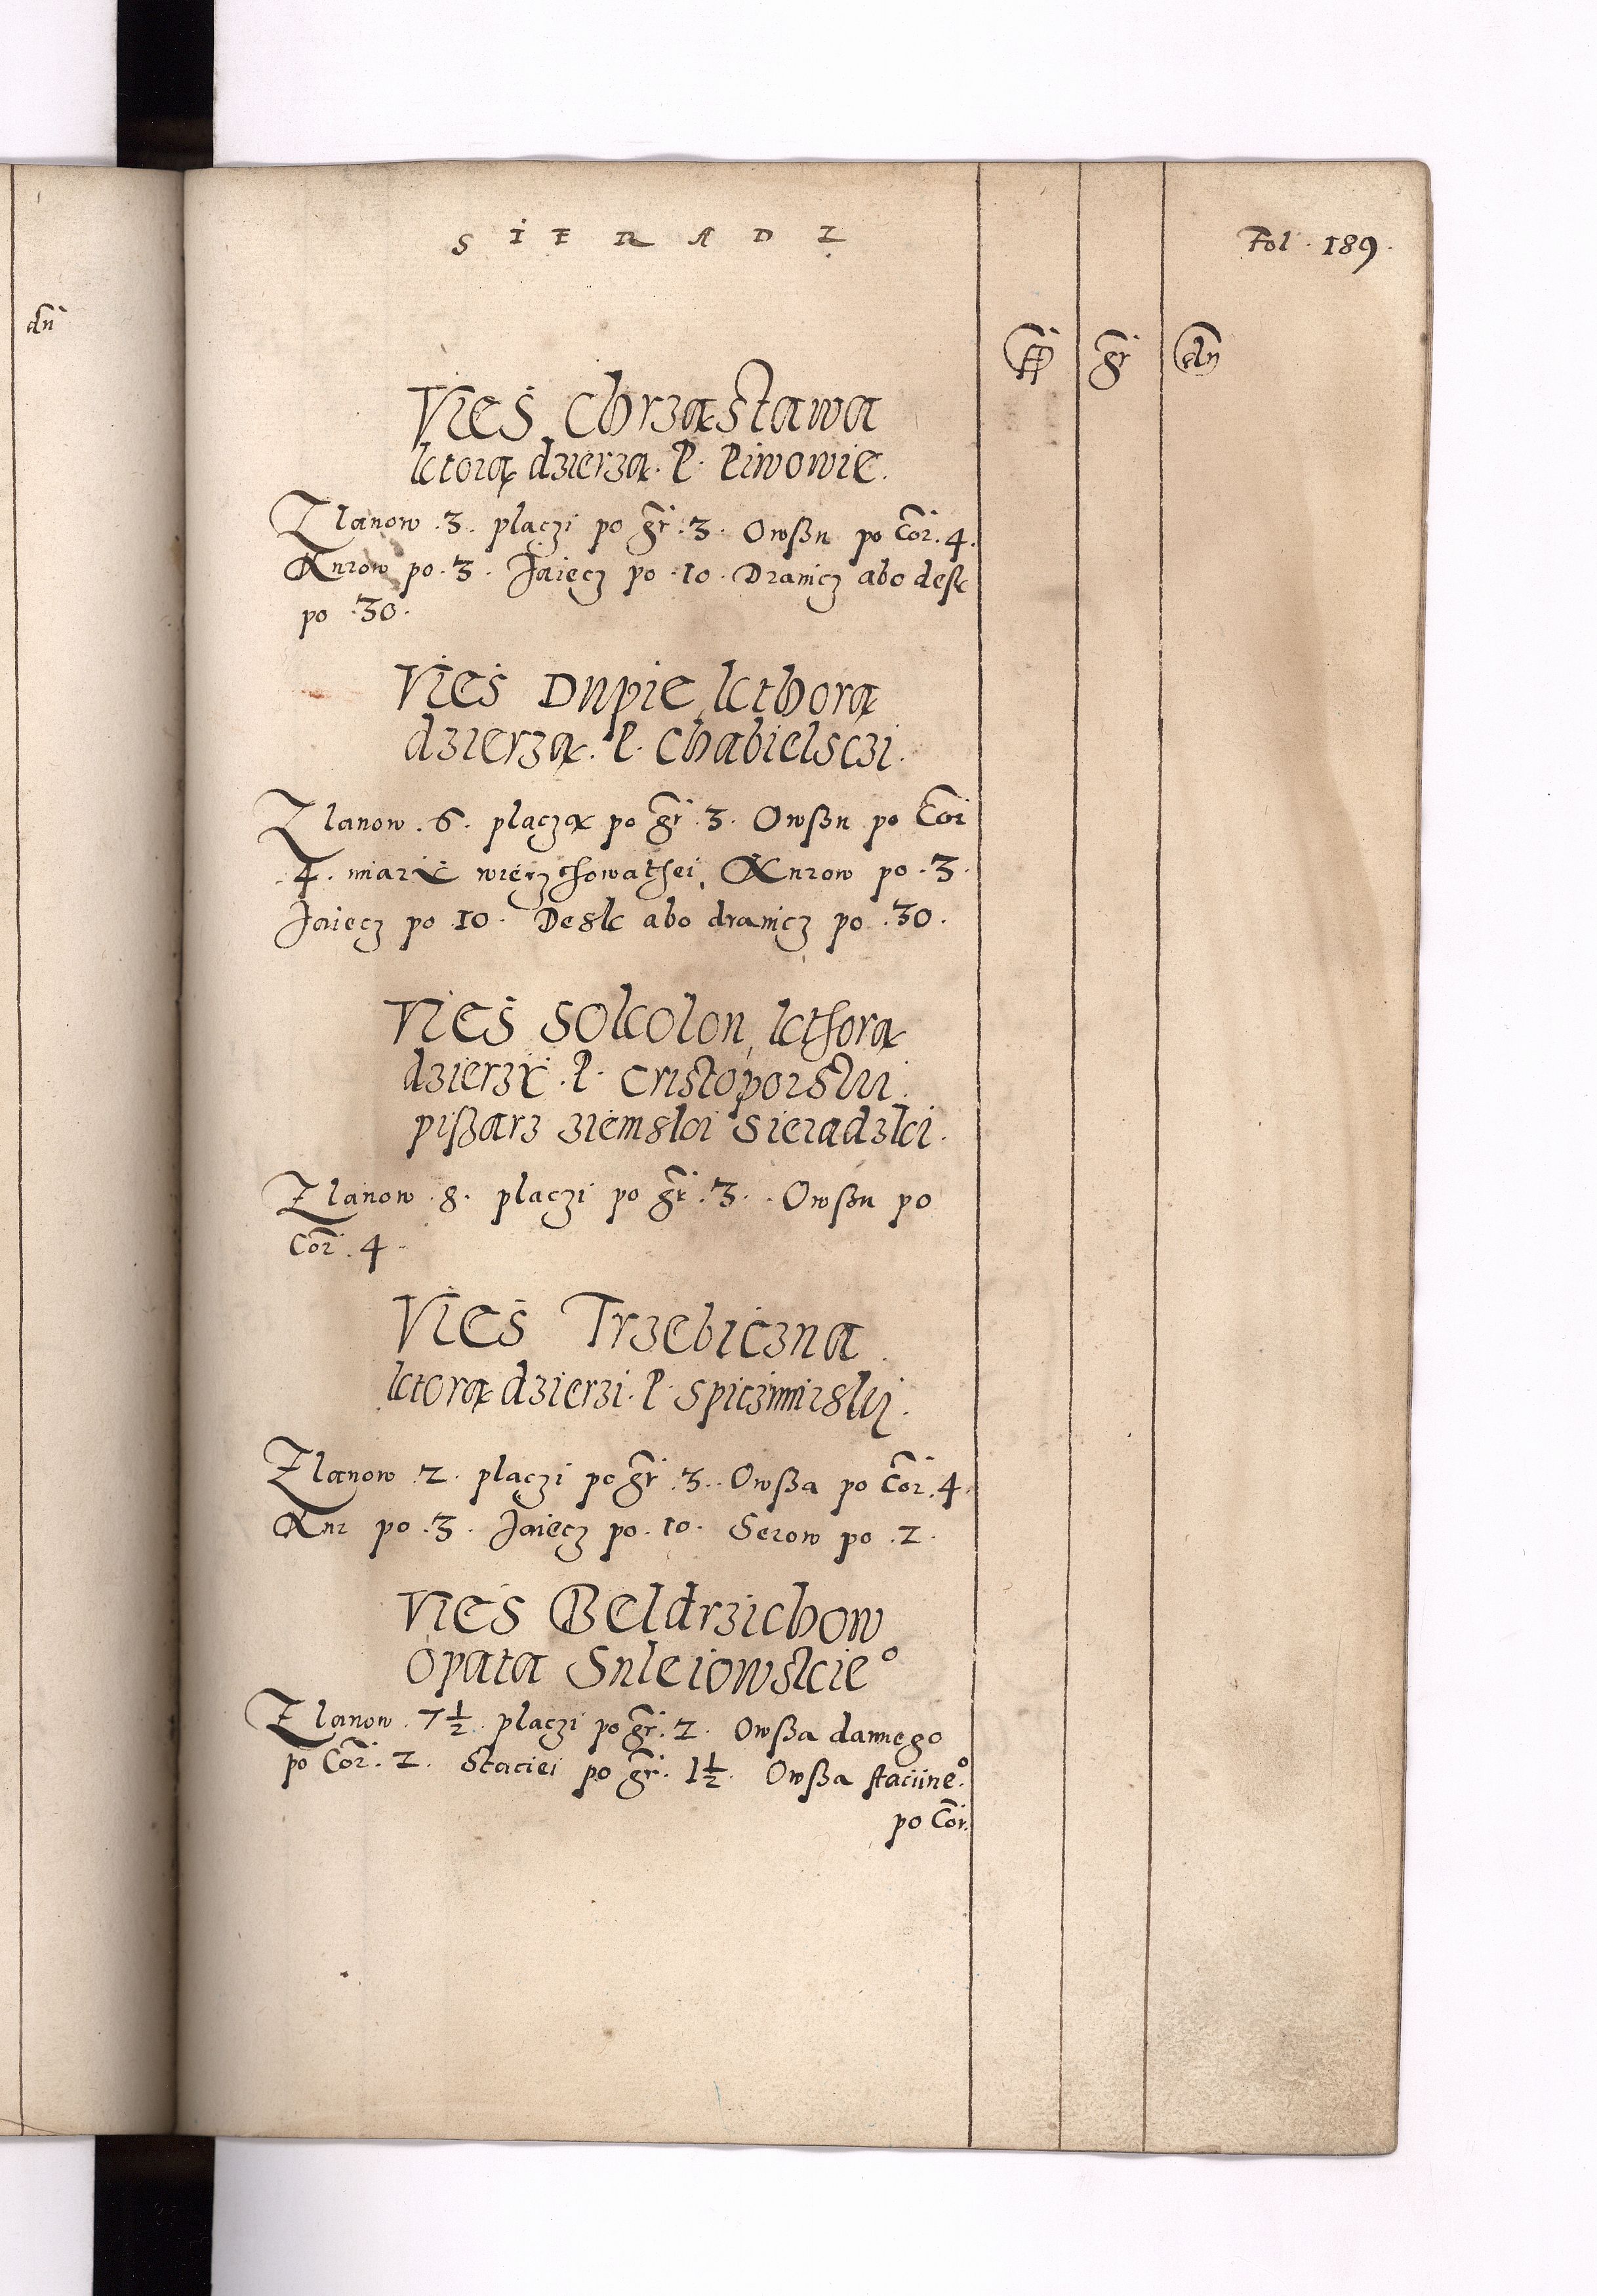 dn̄
SIERADZ
Fol. 189.
gr̄ dn̄
Wieś Chrząstawa
ktorą dzierżą. P. Piwowie.
Z lanow .3. płaczi po gr̄ .3. Owßu po Cor̄. 4.
Kurow po .3. Jaiecz po .10. Dranicz abo desk
po .30.
Wieś Dupie, kthorą
dzierżą. P. Chabielsczi.
Z lanow .6. płaczą po gr̄ .3. Owßu po Cor̄
4. miary wierzchowathei, Kurow po .3.
Jaiecz po 10. Desk abo dranicz po .30.
Wieś Sokolou, kthorą
dzierży .P. Cristoporski
pißarz ziemski Sieradzki.
Z lanow .8. płaczi po gr̄ .3. Owßu po
Cor̄. 4
Wieś Trzebiczna
ktorą dzierzi. P. Spiczimirskÿ.
Z lanow .2. płaczi po gr̄ .3. Owßa po Cor̄. 4.
Kur po .3. Jaiecz po .10. Serow po .2.
Wieś Beldrzichow
Opata Suleiowskie°
Z lanow .7½. płaczi po gr̄. 2. Owßa dannego
po Cor̄. 2. Staciei po gr̄. 1½. Owßa staciine°.
po Cor̄.